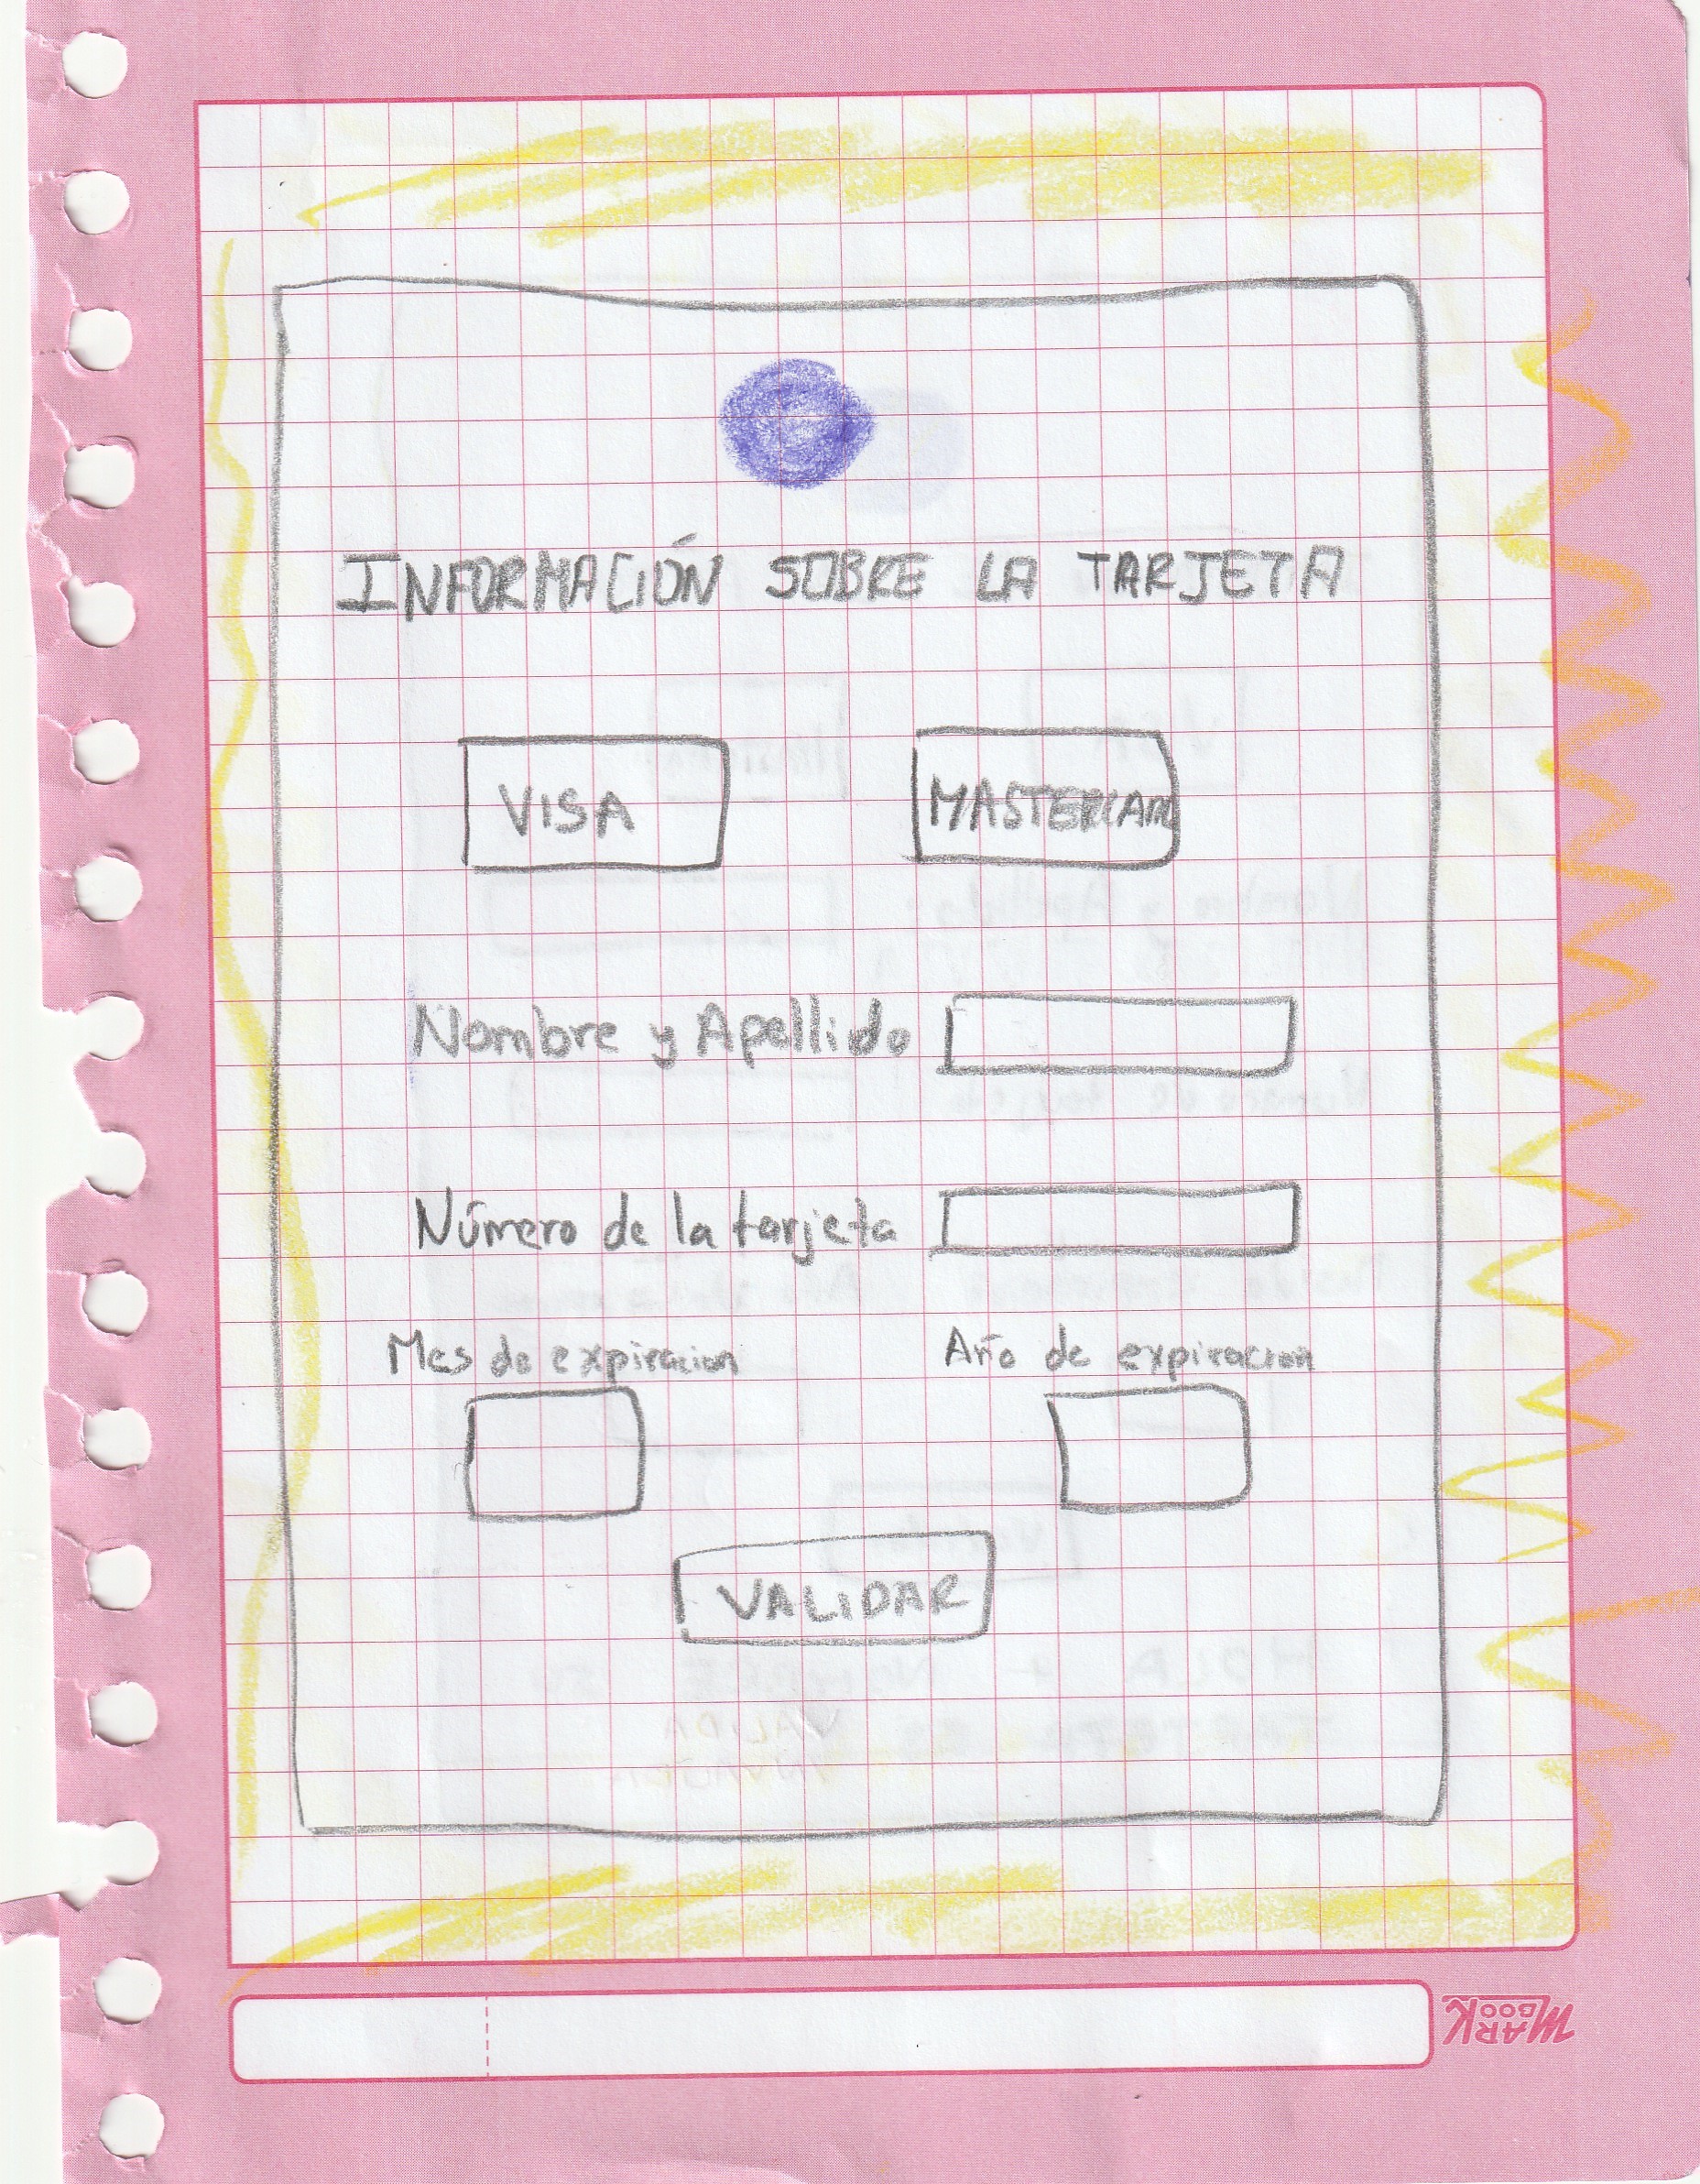 INFORMACIÓN SOBRE LA TARJETA
VISA
MASTERCAR
Nombre y Apellido
Número de la tarjeta
Mes de expiracion
Año de expiracion
VALIDAR
MARK BOOK